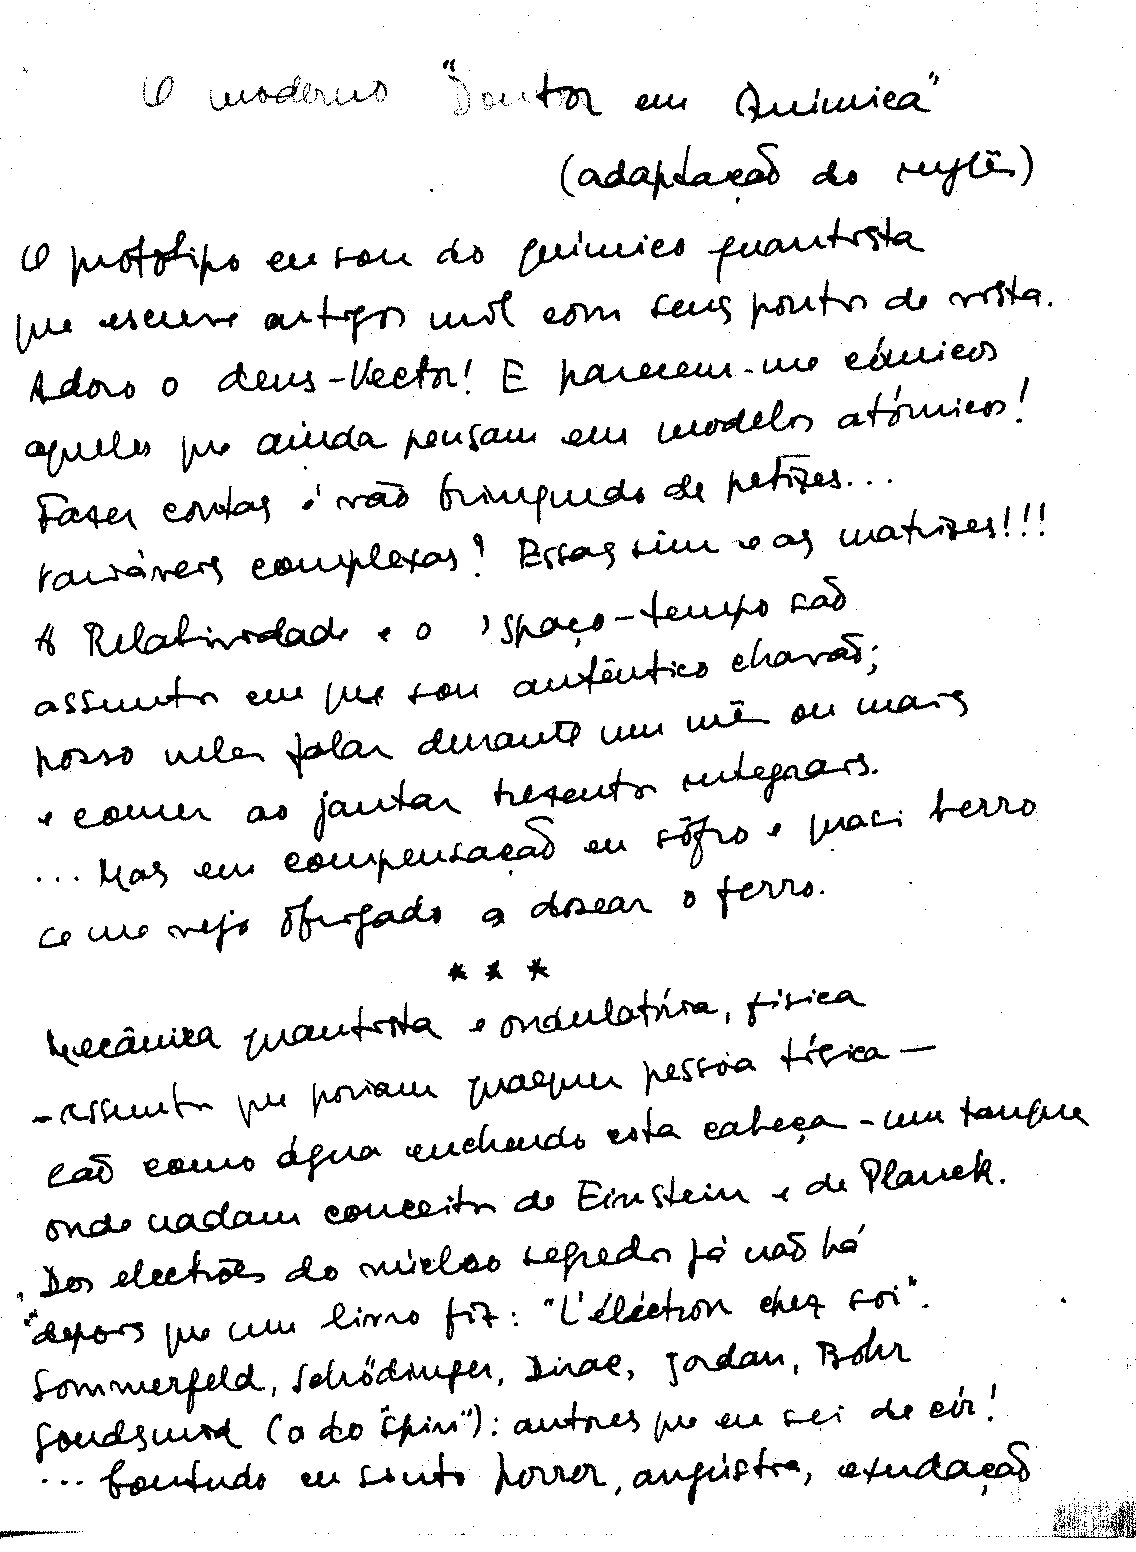 O moderno "Doutor em Química"
(adaptação do inglês)
O protótipo eu sou do químico quantista
que escreve artigos mil com seus pontos de vista.
Adoro o deus-Vector! E parecem-me cómicos
aqueles que ainda pensam em modelos atómicos!
Fazer contas é vão brinquedo de petizes...
Variáveis complexas? Essas sim e as matrizes!!!
A Relatividade e o espaço-tempo são
assuntos em que sou autêntico chavão;
posso neles falar durante um mês ou mais
e comer ao jantar tresentos integrais.
... Mas em compensação eu sôfro e quasi berro
se me vejo obrigado a dosear o ferro.
* * *
Mecânica quantista e ondulatória, física
- assuntos que poriam qualquer pessoa tísica —
são como água enchendo esta cabeça - um tanque
onde nadam conceitos de Einstein e de Planck.
Dos electrões do núcleo segredos já não há
depois que um livro fiz: "L'éléctron chez soi".
Sommerfeld, Schödinger, Dirac, Jordan, Bohr
Goudsmid (o do "spin"): autores que eu sei de cór!
... Contudo eu sinto horror, angústia, exudação